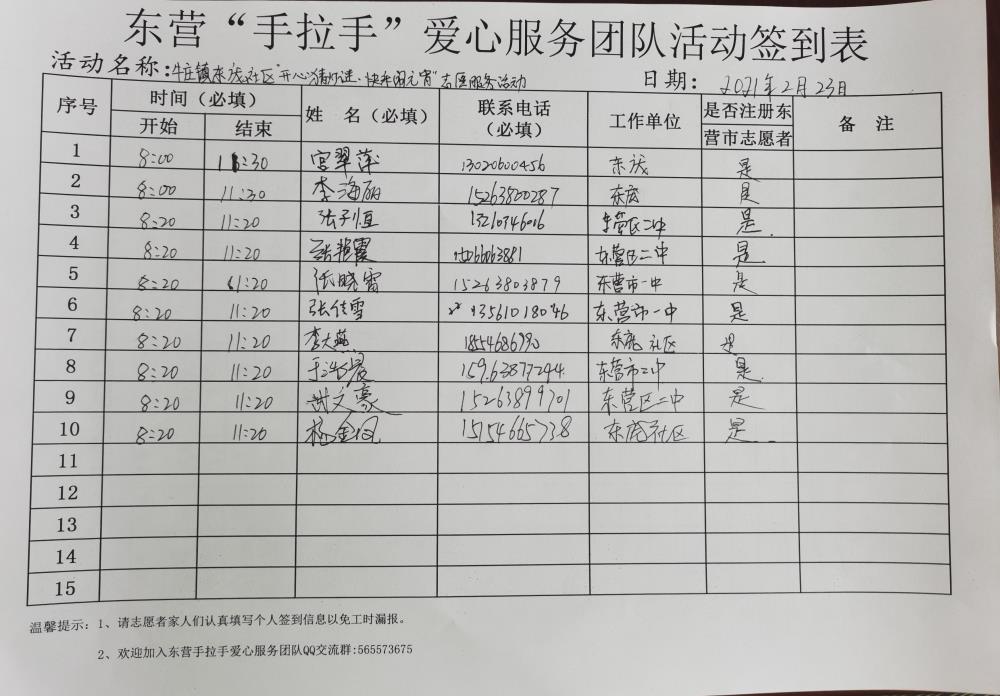 东营“手拉手”爱心服务团队活动签到表
活动名称:牛庄镇东 社区“开心猜灯谜·快乐闹元宵”志愿服务活动 日期: 2021年2月23日
序号 时间（必填） 姓 名（必填） 联系电话（必填） 工作单位 是否注册东营市志愿者 备 注
开始 结束
1 8:00 11:30 宫翠萍 13020600456 东 是
2 8:00 11:30 李海丽 15263800287 东 是
3 8:20 11:20 张子恒 13210346016 东营区二中 是
4 8:20 11:20 张艳霞 东营区二中 是
5 8:20 11:20 张晓雷 15263803879 东营市一中 是
6 8:20 11:20 张佳雪 13561018046 东营市一中 是
7 8:20 11:20 李大燕 1854686990 东 社区 是
8 8:20 11:20 于浩晨 15963877244 东营市二中 是
9 8:20 11:20 谢文豪 15263899701 东营区二中 是
10 8:20 11:20 杨金凤 15154665738 东 社区 是
11
12
13
14
15
温馨提示：1、请志愿者家人们认真填写个人签到信息以免工时漏报。
2、欢迎加入东营手拉手爱心服务团队QQ交流群:565573675